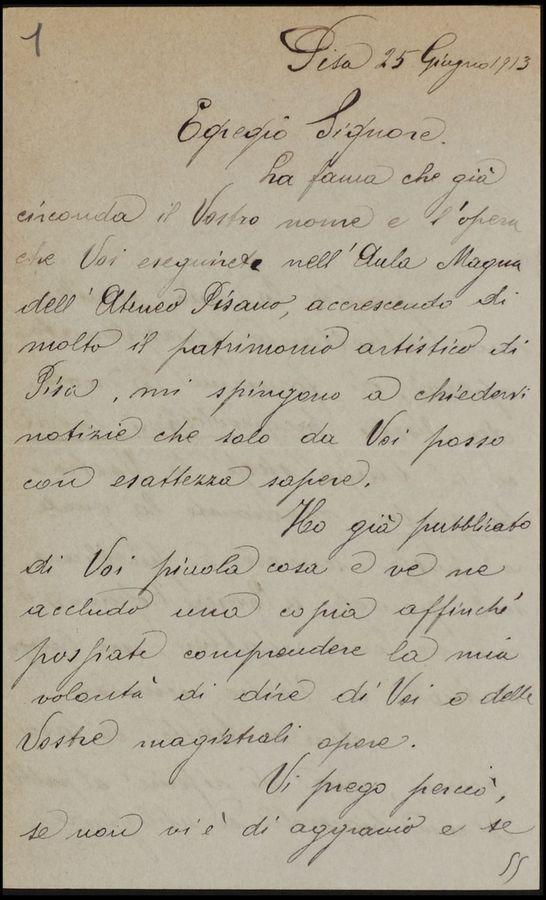 1
Pisa 25 Giugno 1913
Egregio Signore.
La fama che già
circonda il Vostro nome e l'opera
che Voi eseguirete nell'Aula Magna
dell'Ateneo Pisano, accrescendo di
molto il patrimonio artistico di
Pisa, mi spingono a chiedervi
notizie che solo da Voi posso
con esattezza sapere.
Ho già pubblicato
di Voi picola cosa e ve ne
accludo una copia affinché
possiate comprendere la mia
volontà di dire di Voi e delle
Vostre magistrali opere.
Vi prego perciò,
se non vi è di aggravio e se